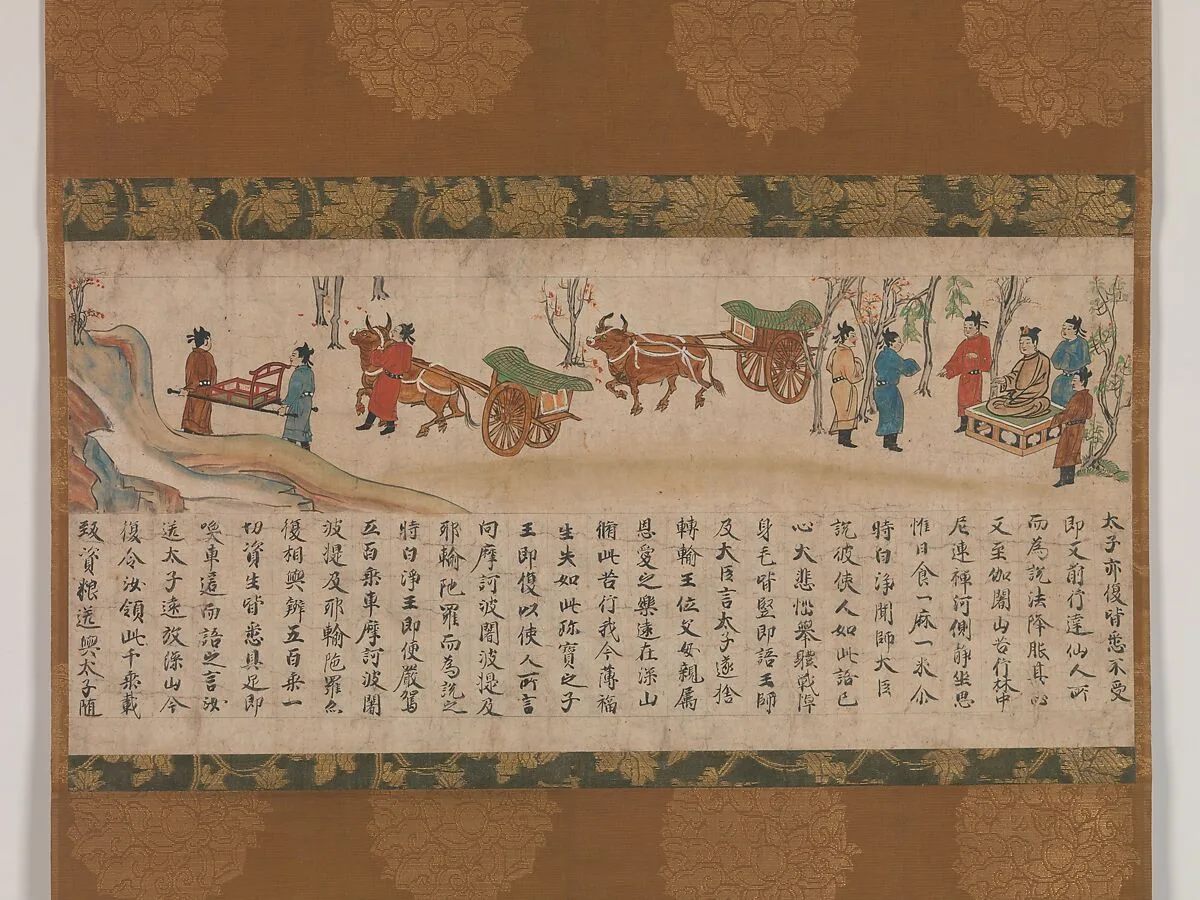 太子亦復皆悉不受
即又前行達仙人所
而為說法降伏其心
又至伽闍山苦行林中
尼連禪河側靜坐思
惟日食一麻一米尒
時白淨聞師大臣
說彼使人如此語已
心大悲惱舉體戰悼
身毛皆竪即語王師
及大臣言太子遂捨
轉輪王位父母親属
恩愛之樂遠在深山
脩此苦行我今薄福
生失如此珎寶之子
王即復以使人所言
向摩訶波闍波提及
耶輸陁羅而為說之
時白淨王即便嚴駕
五百乘車摩訶波闍
波提及耶輸陁羅亦
復相與辨五百乘一
切資生皆悉具足即
喚車匿而語之言汝
送太子遠放深山今
復令汝領此千乘載
致資粮送與太子随